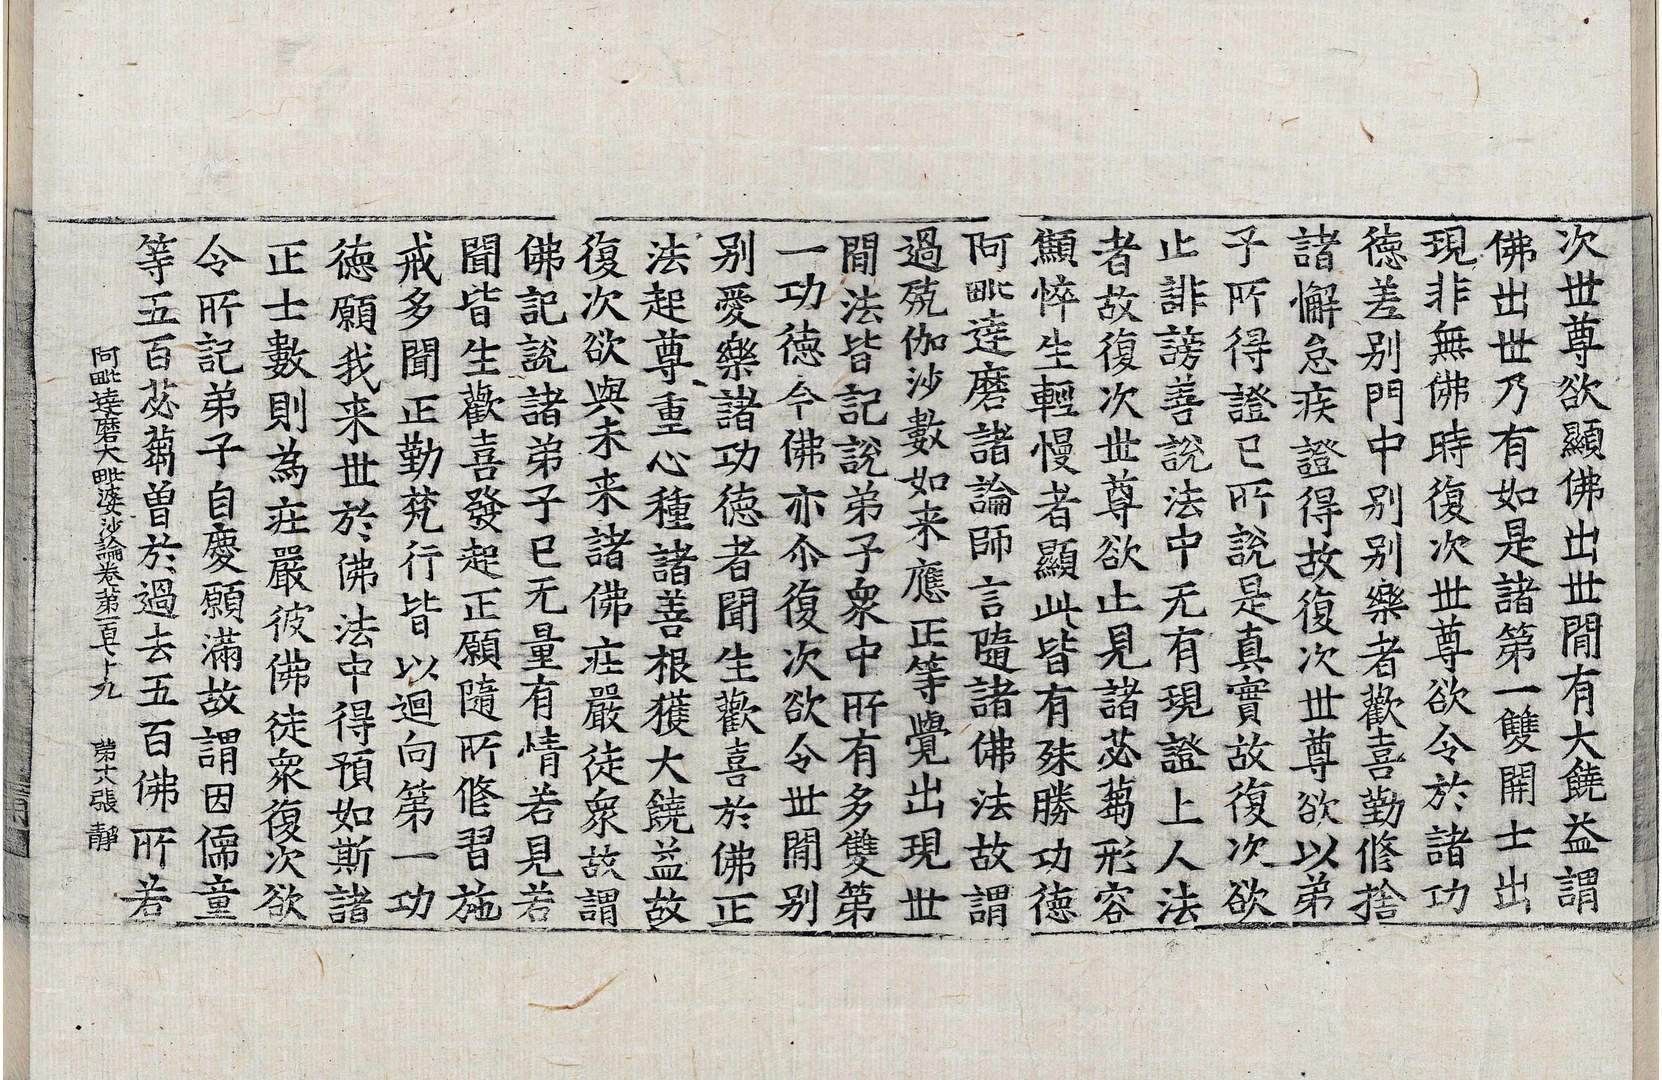 次世尊欲顯佛出世間有大饒益謂
佛出世乃有如是諸第一雙開士出
現非無佛時復次世尊欲令於諸功
德差别門中别别樂者歡喜勤修捨
諸懈怠疾證得故復次世尊欲以弟
子所得證已所說是真實故復次欲
止誹謗善說法中无有現證上人法
者故復次世尊欲止見諸苾蒭形容
顦悴生輕慢者顯此皆有殊勝功德
阿毗達磨諸論師言隨諸佛法故謂
過殑伽沙數如来應正等覺出現世
間法皆記說弟子衆中所有多雙第
一功德今佛亦尒復次欲令世間别
别愛樂諸功德者聞生歡喜於佛正
法起尊重心種諸善根獲大饒益故
復次欲與未来諸佛莊嚴徒衆故謂
佛記說諸弟子已无量有情若見若
聞皆生歡喜發起正願隨所修習施
戒多聞正勤梵行皆以迴向第一功
德願我来世於佛法中得預如斯諸
正士數則為莊嚴彼佛徒衆復次欲
令所記弟子自慶願滿故謂因儒童
等五百苾蒭曾於過去五百佛所若
阿毗達磨大毗婆沙論卷第一百七十九 第十張 靜